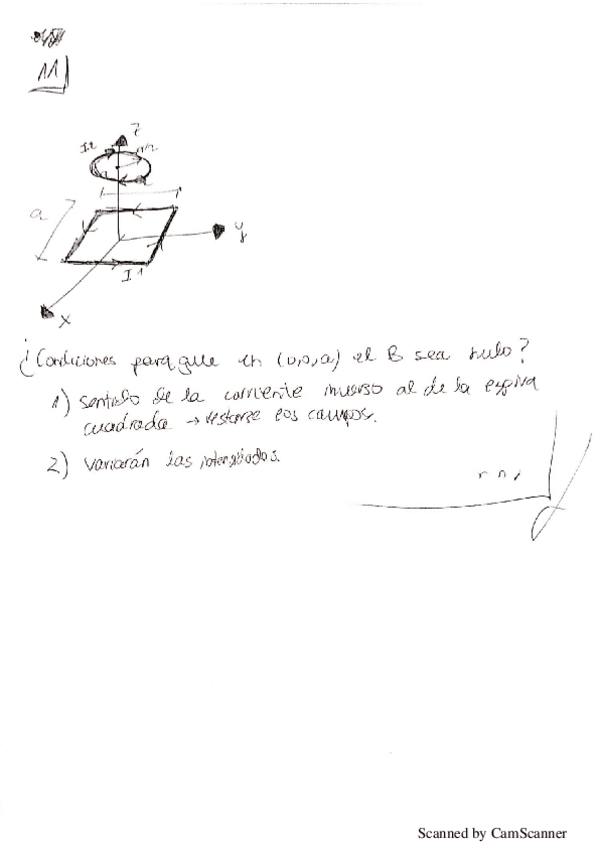 11
z
I2
a/2
a
y
I1
x
¿Condiciones para que en (0,0,a) el B sea nulo?
1) sentido de la corriente inverso al de la espira
cuadrada → restarse los campos.
2) Variarán las intensidades.
Scanned by CamScanner